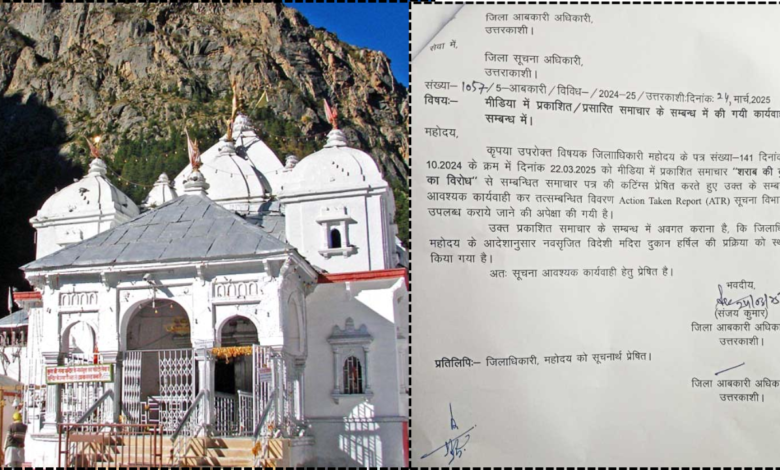 जिला आबकारी अधिकारी,
उत्तरकाशी।
सेवा में,
जिला सूचना अधिकारी,
उत्तराकाशी।
संख्या– 1057/5–आबकारी/विविध–/2024–25/उत्तरकाशी:दिनांक: 24, मार्च,2025
विषयः– मीडिया में प्रकाशित/प्रसारित समाचार के सम्बन्ध में की गयी
सम्बन्ध में।
महोदय,
कृपया उपरोक्त विषयक जिलाधिकारी महोदय के पत्र संख्या–141
10.2024 के क्रम में दिनांक 22.03.2025 को मीडिया में प्रकाशित समाचार "शराब की
का विरोध" से सम्बन्धित समाचार पत्र की कटिंग्स प्रेषित करते हुए उक्त के
आवश्यक कार्यवाही कर तत्सम्बन्धित विवरण Action Taken Report (ATR) सूचना
उपलब्ध कराये जाने की अपेक्षा की गयी है।
उक्त प्रकाशित समाचार के सम्बन्ध में अवगत कराना है, कि
महोदय के आदेशानुसार नवसृजित विदेशी मदिरा दुकान हर्षिल की प्रक्रिया को
किया गया है।
अतः सूचना आवश्यक कार्यवाही हेतु प्रेषित है।
भवदीय,
(संजय कुमार)
जिला आबकारी
उत्तरकाशी।
प्रतिलिपिः– जिलाधिकारी, महोदय को सूचनार्थ प्रेषित।
जिला आबकारी
उत्तरकाशी।